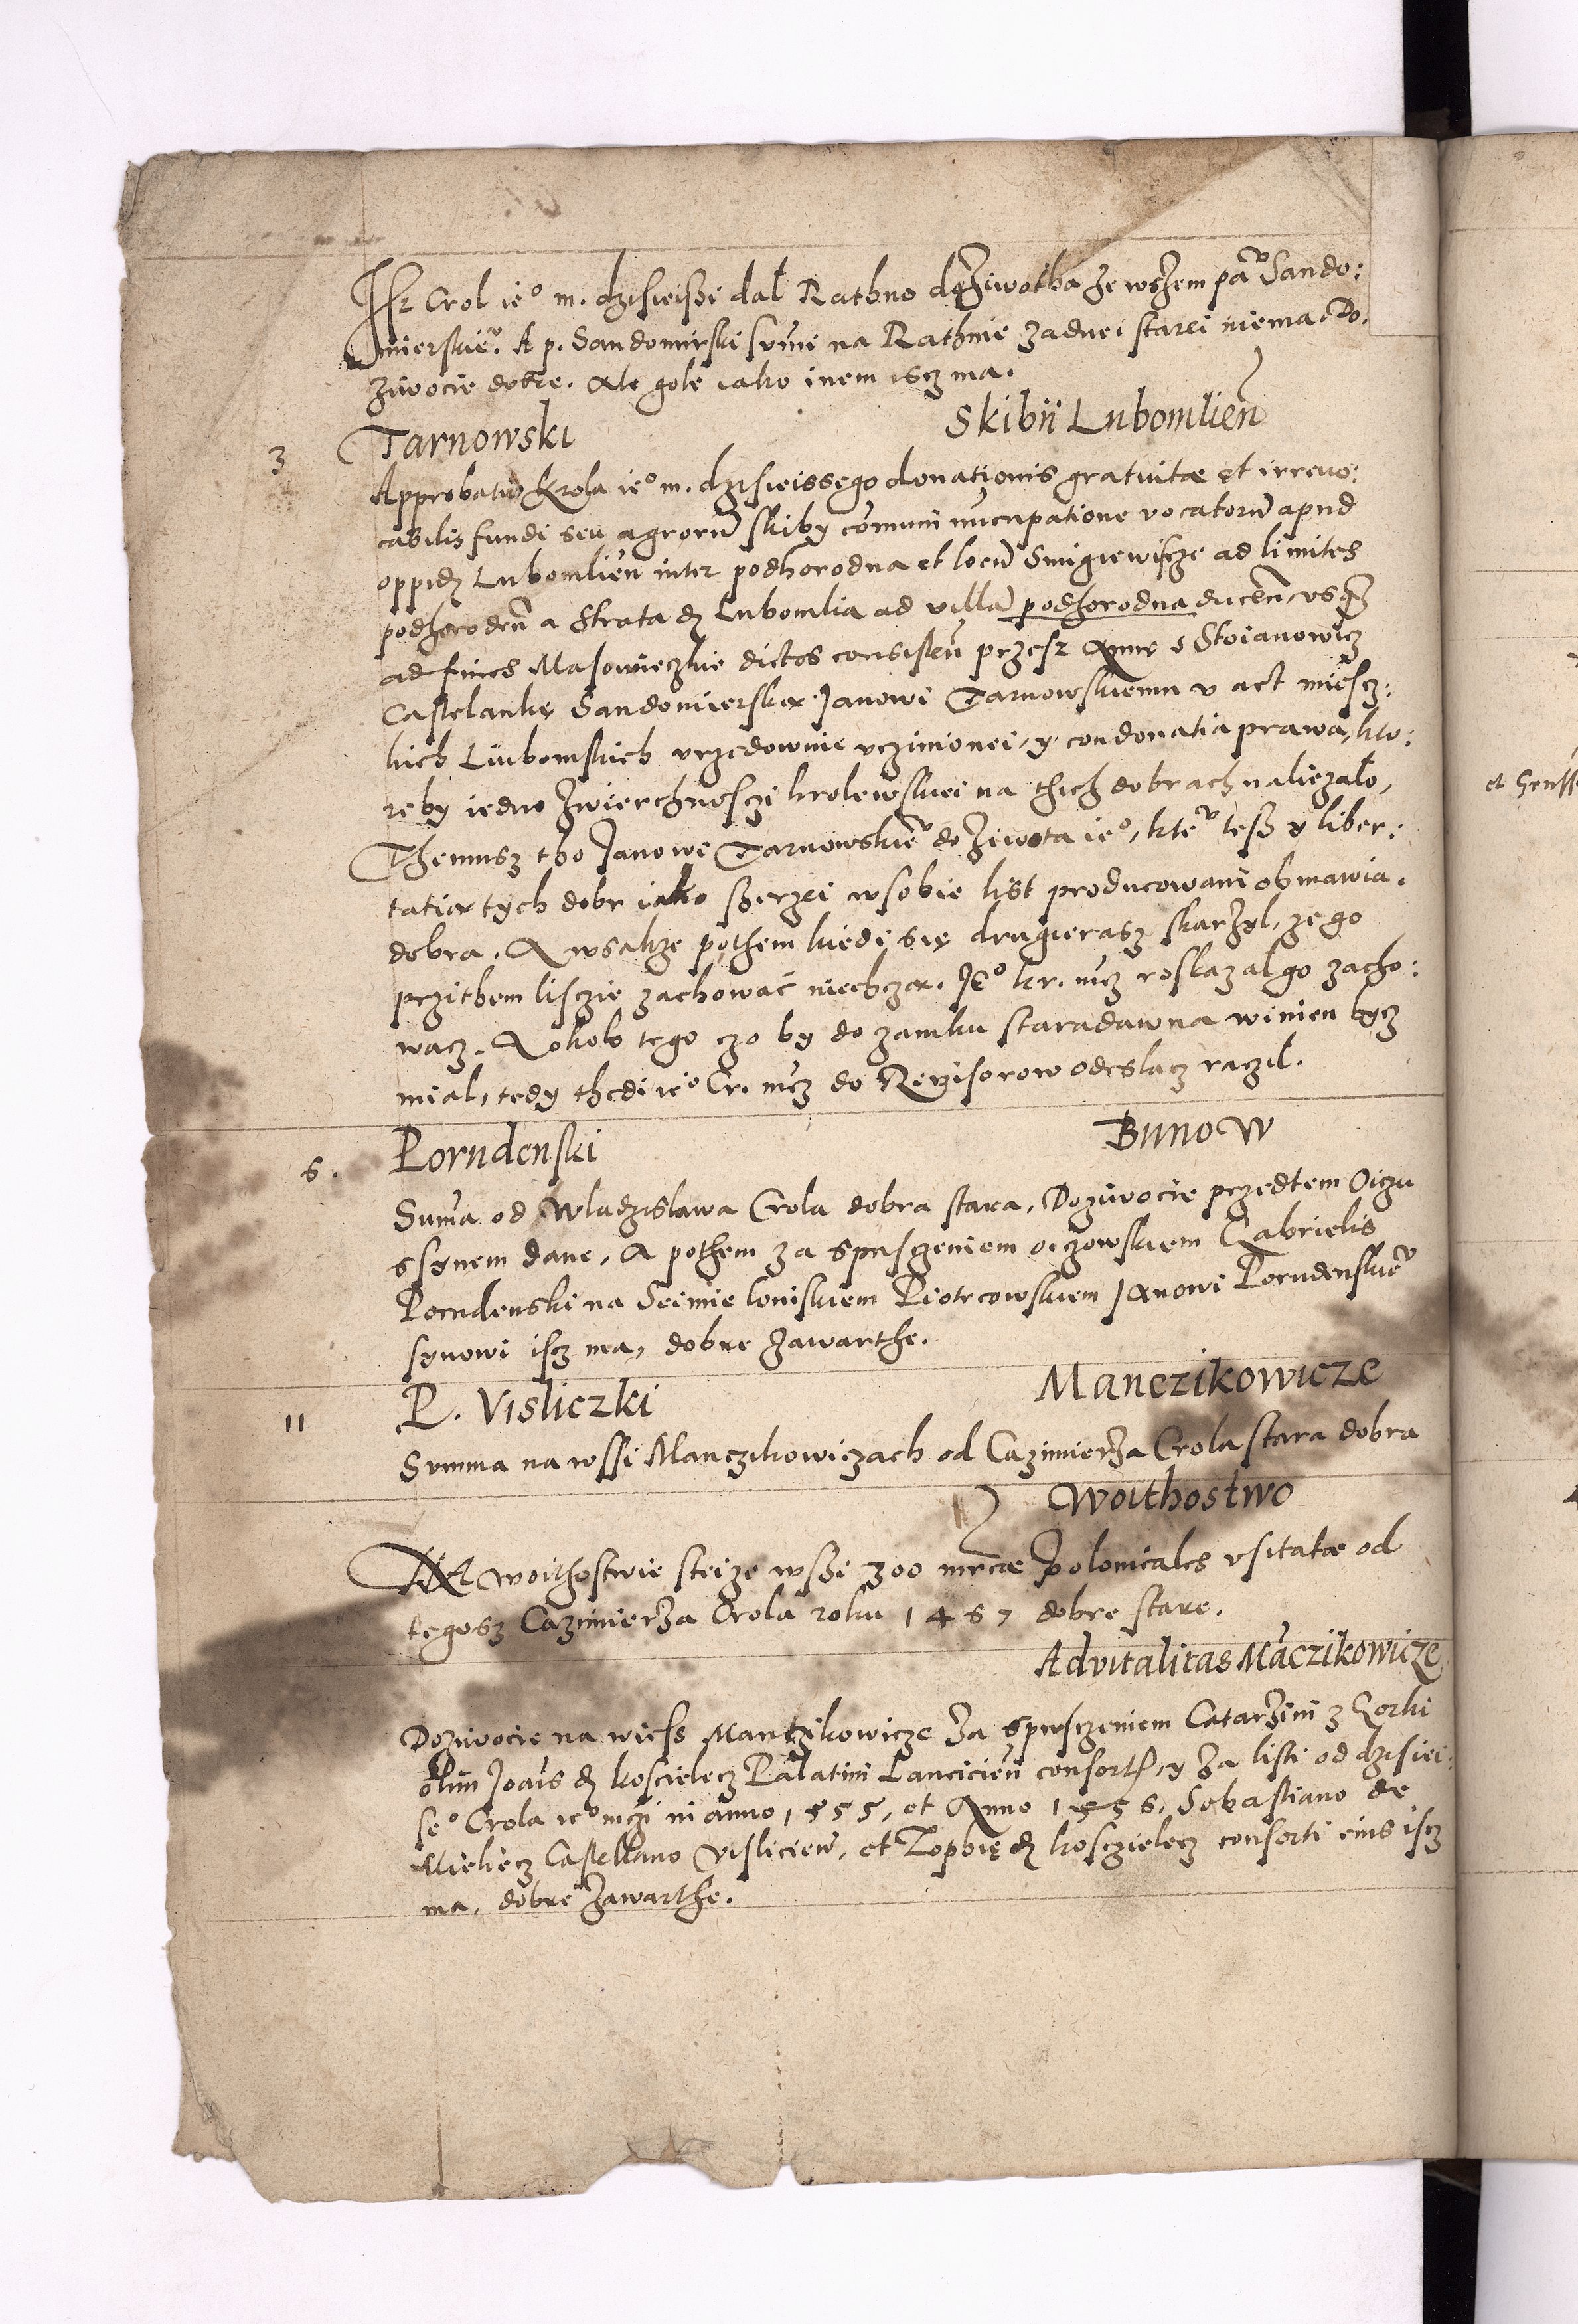 Isz Crol ie° m. dzisieiszi dal Rathno do ziwotha ze wszem pāᵘ Sando:
mierskieᵘ. A p. Sandomirski sumi na Rathnie zadnei starei niema. Do.
ziwocie dobre. Ale gole iako inem iscz ma.
Skibii Lubomlieñ
3 Tarnowski
Approbatio Krola ie° m. dzisieissego donationis gratuitæ et irreuo:
cabilis fundi seu agrorū skiby cōmuni nūcupatione vocatorū apud
oppidū Lubomlieñ inter podhorodna et locū Smigiewiscze ad limites
podhorodeñ a strata de Lubomlia ad villā podhorodna duceñ vsqz
ad fines Masowieczkie dictos consisteñ przesz Anne s Stoianowicz
Castelanke Sandomierska Janowi Tarnowskiemu v act miescz:
kich Liubomskich vrzędownie vczinionei, y condonatia prawa, kto:
reby iedno zwierchnosczi krolewskiei na thich dobrach naliezalo,
Themusz tho Janowi Tarnowskieᵘ do ziwota ie°, kteᵘ tesz y liber:
tatia tych dobr iako szerzei w sobie list producowani obmawia.
dobra. A wsakze pothem kiedi się drugierasz skarzyl, ze go
przithem lisczie zachowac niechcza. Je° kr. mcz roskazal go zacho:
wacz. A okolo tego czo by do zamku staradawna winien bycz
mial, tedy thedi ie° Cr. mcz do Rewisorow odeslacz raczil.
6. Porudenski Bunow
Suma od Wladzislawa Crola dobra stara, Doziwocie przedtem Oiczu
s synem dane, A pothem za spusczeniem oiczowskiem Gabrielis
Porudenski na Seimie koniskiem Piotrcowskiem Janowi Porudenskieᵘ
synowi iscz ma, dobre zawarthe.
11 P. Visliczki Manczikowicze
Summa na wssi Manczikowiczach od Cazimierza Crola stara dobra
Woithostwo
Na Woithostwie steize wszi 300 mrcæ polonicales vsitatæ od
tegosz Cazimierza Crola roku 1467 dobre stare.
Advitalitas Māczikowicze
Doziwocie na wiess Manczikowicze za spusczeniem Catarzini z Gorki
olim Joānis de koscielecz Palatini Lancicieñ consortis, y za listi od dzisiei:
se° Crola ie° mczi in anno 1555, et Anno 1556, Sebastiano de
Mieliecz Castellano Visliciens, et Zophię de kosczielecz consorti eius iscz
ma, dobre zawarthe.